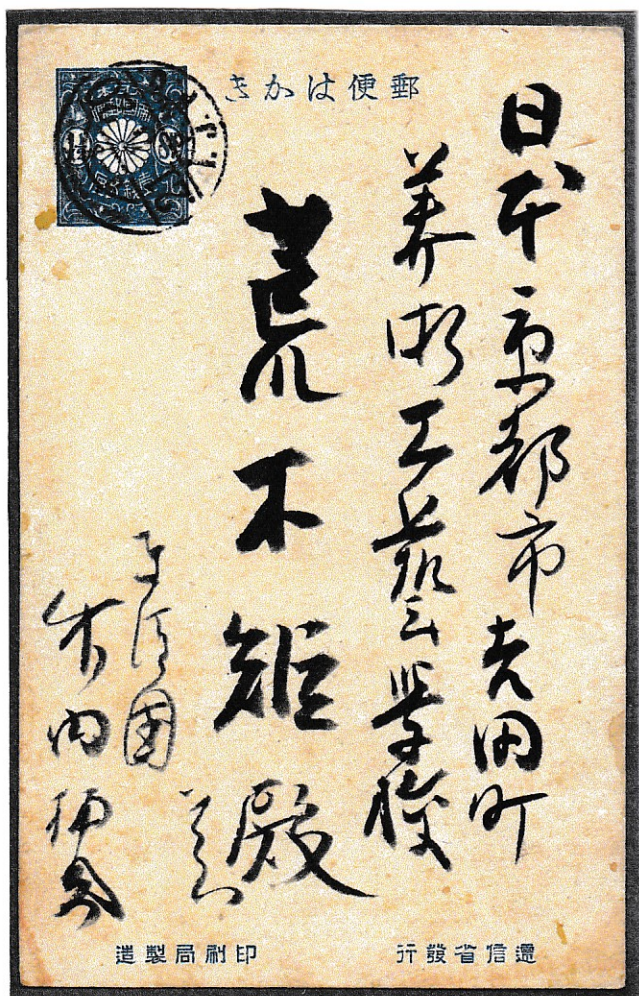 郵便はかき
日本京都市吉田町
美術工藝学校
荒木矩殿
竹内
遞信省發行
印刷局製造